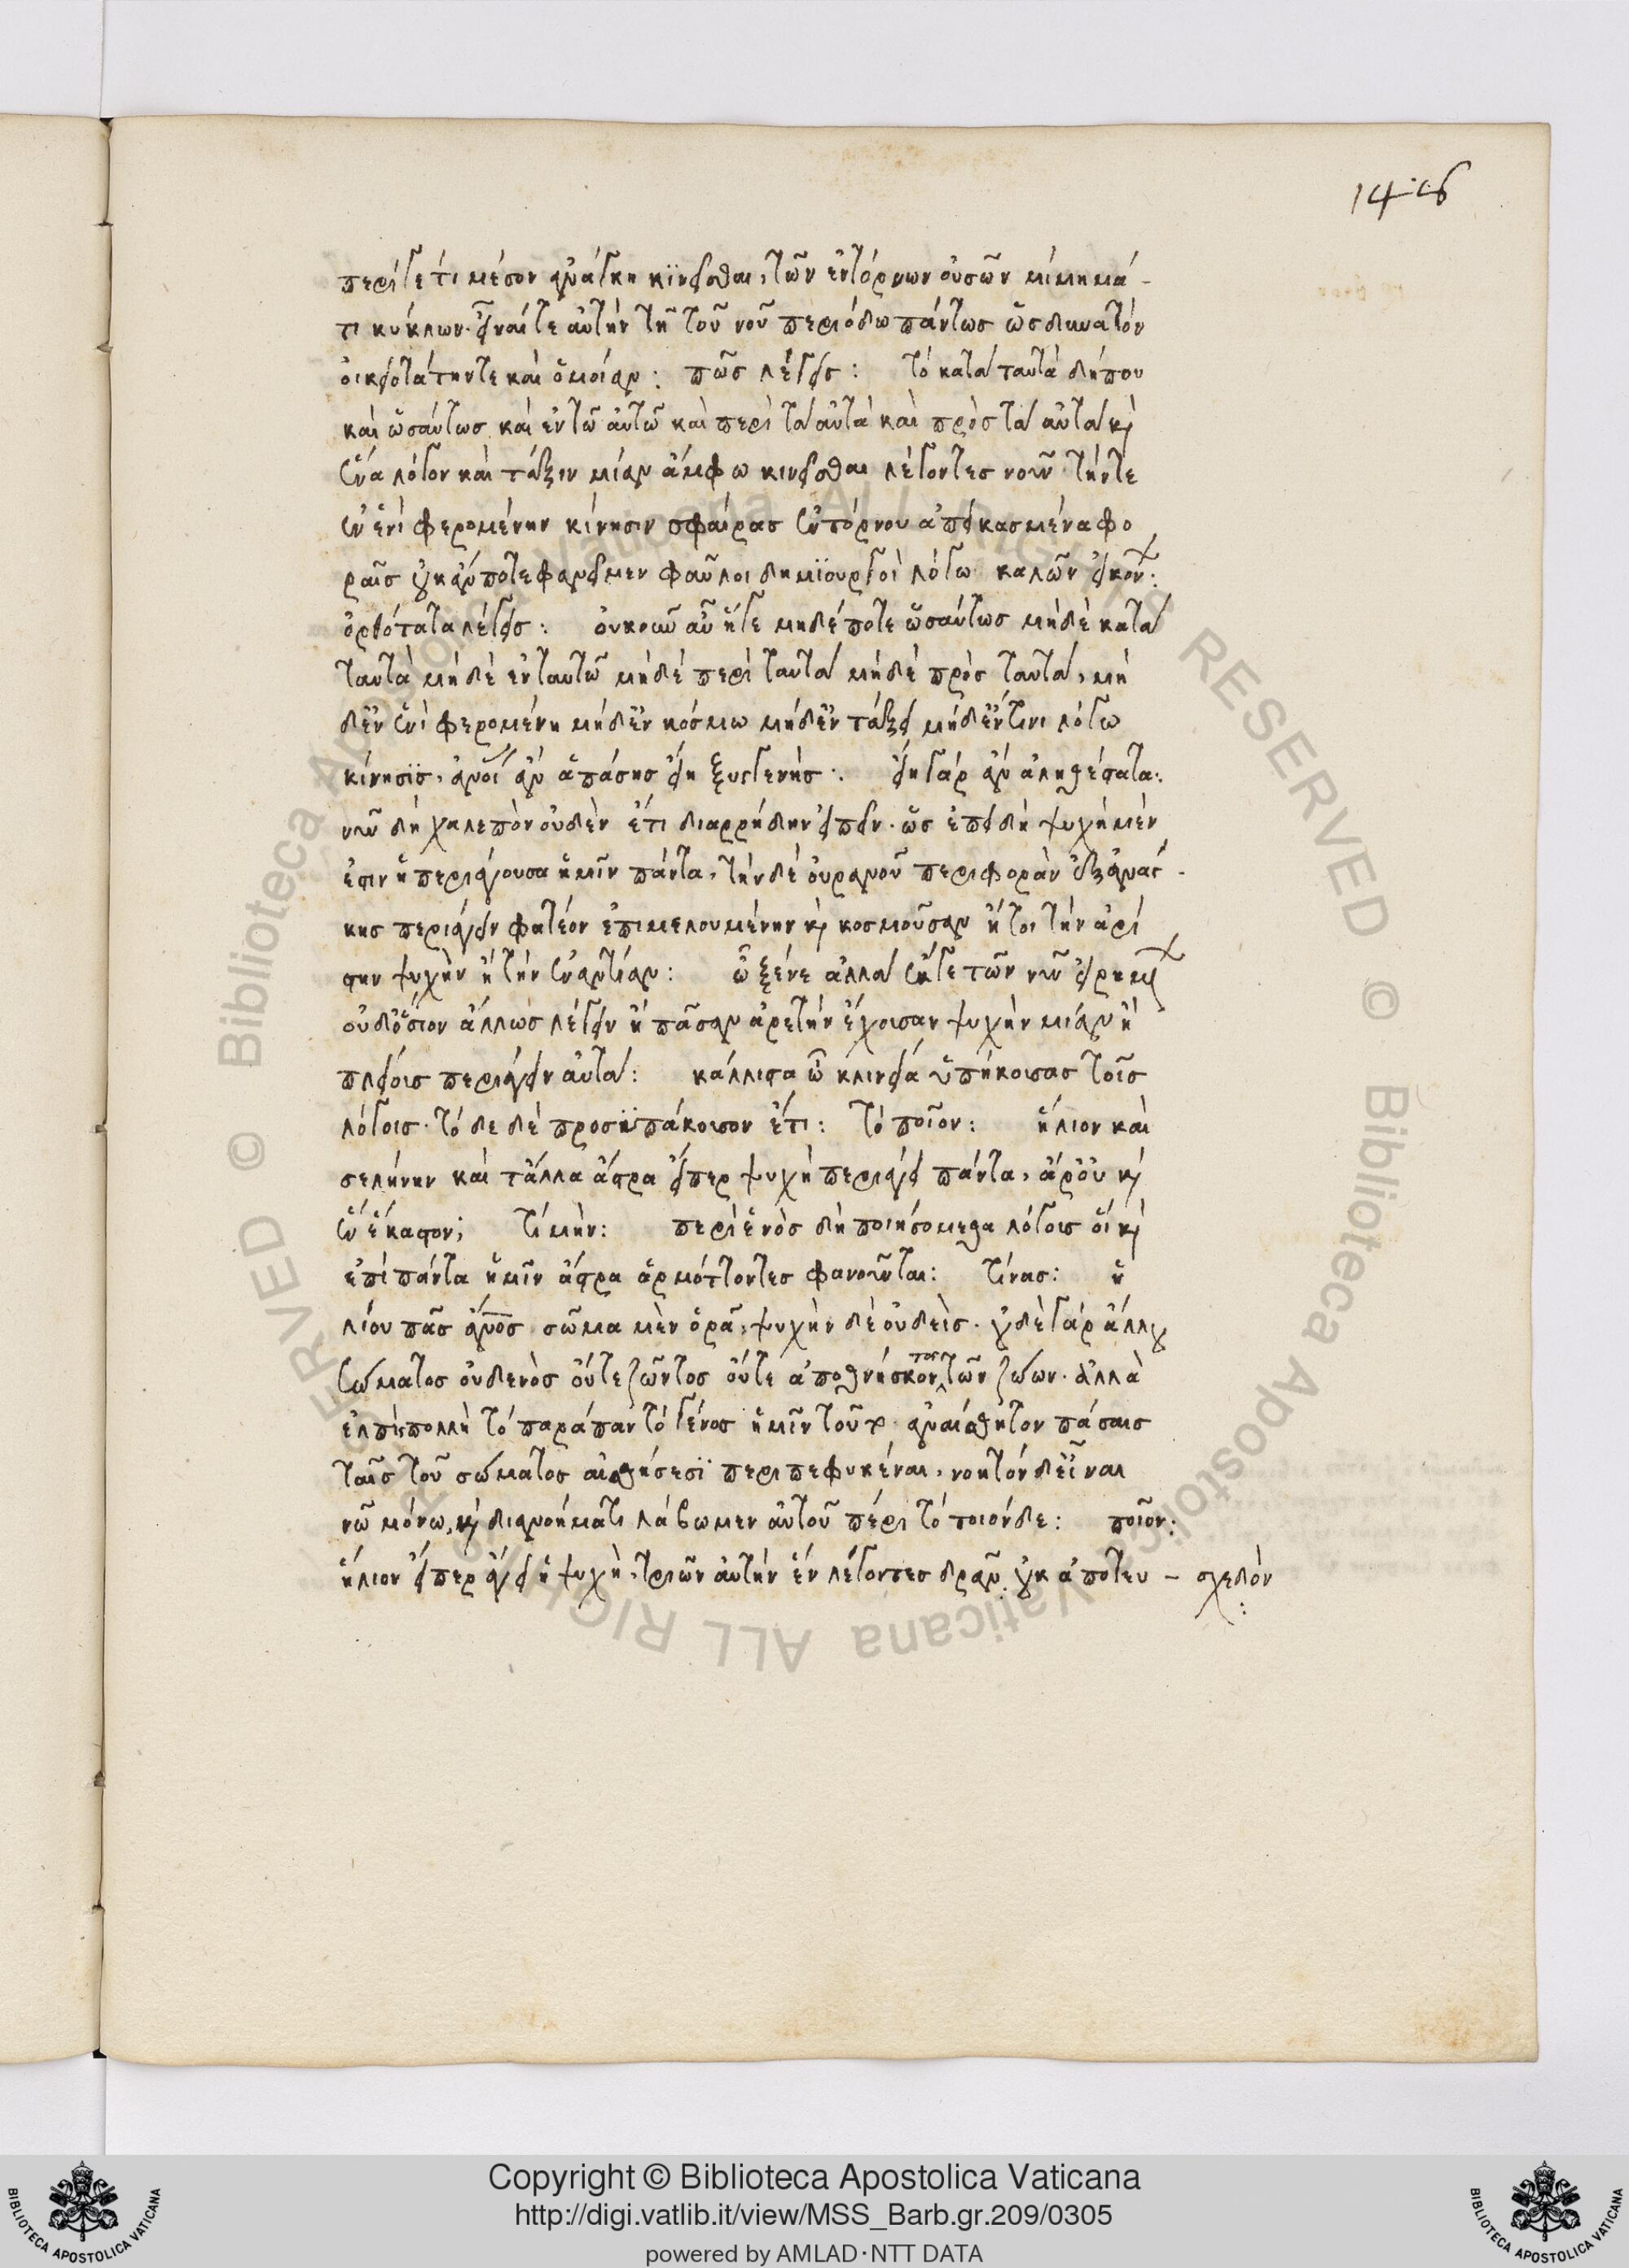 146
περίγε τι μέσον ἀνάγκη κϊνεῖσθαι, τῶν ἐντόρνων οὐσῶν μίμημά-
τι κύκλων. εἶναί τε αὐτὴν τῆ τοῦ νοῦ περιόδω πάντωσ ὡσ δυνατὸν
οἰκειοτάτην τε καὶ ὁμοίαν: πῶσ λέγεισ: τὸ κατὰ ταυτὰ δήπου
καὶ ὡσαύτωσ καὶ ἐν τῶ αὐτῶ καὶ περὶ τὰ αὐτὰ καὶ πρὸσ τὰ αὐτὰ κὶ
ἕνα λόγον καὶ τάξιν μίαν ἄμφω κινεῖσθαι λέγοντεσ νοῦν τήν τε
ἐν ἑνὶ φερομένην κίνησιν σφαίρασ ἐντόρνου ἀπεικασμένα φο
ραῖσ οὐκ ἄν ποτε φανεῖμεν φαῦλοι δημϊουργοὶ λόγω καλῶν εἰκόν:
ὀρθότατα λέγεισ: οὐκοῦν αὖ ἥγε μηδέποτε ὡσαύτωσ μηδὲ κατὰ
ταυτὰ μηδὲ ἐν ταυτῶ μηδὲ περὶ ταυτὰ μηδὲ πρὸσ ταυτὰ, μη
δὲ ἐν ἑνὶ φερομένη μηδ' ἐν κόσμω μηδ' ἐν τάξει μηδ' ἔν τινι λόγω
κίνησϊσ, ἀνοί ἂν ἁπάσησ εἴη ξυγγενήσ: εἴη γὰρ ἂν ἀληθέστατα:
νῦν δὴ χαλεπὸν οὐδὲν ἔτι διαρρήδην εἰπεῖν. ὡσ ἐπειδὴ ψυχὴ μέν
ἐστιν ἡ περιάγουσα ἡμῖν πάντα, τὴν δὲ οὐρανοῦ περιφορὰν ἐξ ἀνάγ-
κησ περιάγειν φατέον ἐπιμελουμένην κὶ κοσμοῦσαν ἤτοι τὴν ἀρί
στην ψυχὴν ἢ τὴν ἐναντίαν: ὦ ξένε ἀλλὰ ἔκ γε τῶν νῦν εἰρημ
οὐδ' ὅσιον ἄλλωσ λέγειν ἢ πᾶσαν ἀρετὴν ἔχουσαν ψυχὴν μίαν ἢ
πλείουσ περιάγειν αὐτὰ: κάλλιστα ὦ κλεινία ὑπήκουσασ τοῖσ
λόγοισ. τὸ δε δὲ προσϋπάκουσον ἔτι: τὸ ποῖον: ἥλιον καὶ
σελήνην καὶ τἆλλα ἄστρα εἴπερ ψυχὴ περιάγει πάντα, ἆρ' οὐ κὶ
ἓν ἕκαστον; τί μὴν: περὶ ἑνὸσ δὴ ποιησόμεθα λόγουσ οἳ κὶ
ἐπὶ πάντα ἡμῖν ἄστρα ἁρμόττοντεσ φανοῦνται: τίνασ: ἡ
λίου πᾶσ ἄνοσ σῶμα μὲν ὁρᾶ, ψυχὴν δὲ οὐδείσ. οὐδὲ γὰρ ἄλλου
σώματοσ οὐδενὸσ οὔτε ζῶντοσ οὔτε ἀποθνήσκοντοσ τῶν ζώων. ἀλλὰ
ἐλπὶσ πολλὴ τὸ παράπαν τὸ γένοσ ἡμῖν τοῦτο ἀναίσθητον πάσαισ
ταῖσ τοῦ σώματοσ αἰσθήσεσϊ περιπεφυκέναι, νοητὸν δ' εἶναι
νῶ μόνω, κὶ διανοήματι λάβωμεν αὐτοῦ πέρι τὸ τοιόνδε: ποῖον:
ἥλιον εἴπερ ἄγει ἡ ψυχὴ, τριῶν αὐτὴν ἓν λέγοντεσ δρᾶν οὐκ ἀποτευ – σχεδὸν
Copyright © Biblioteca Apostolica Vaticana
http://digi.vatlib.it/view/MSS_Barb.gr.209/0305
powered by AMLAD·NTT DATA